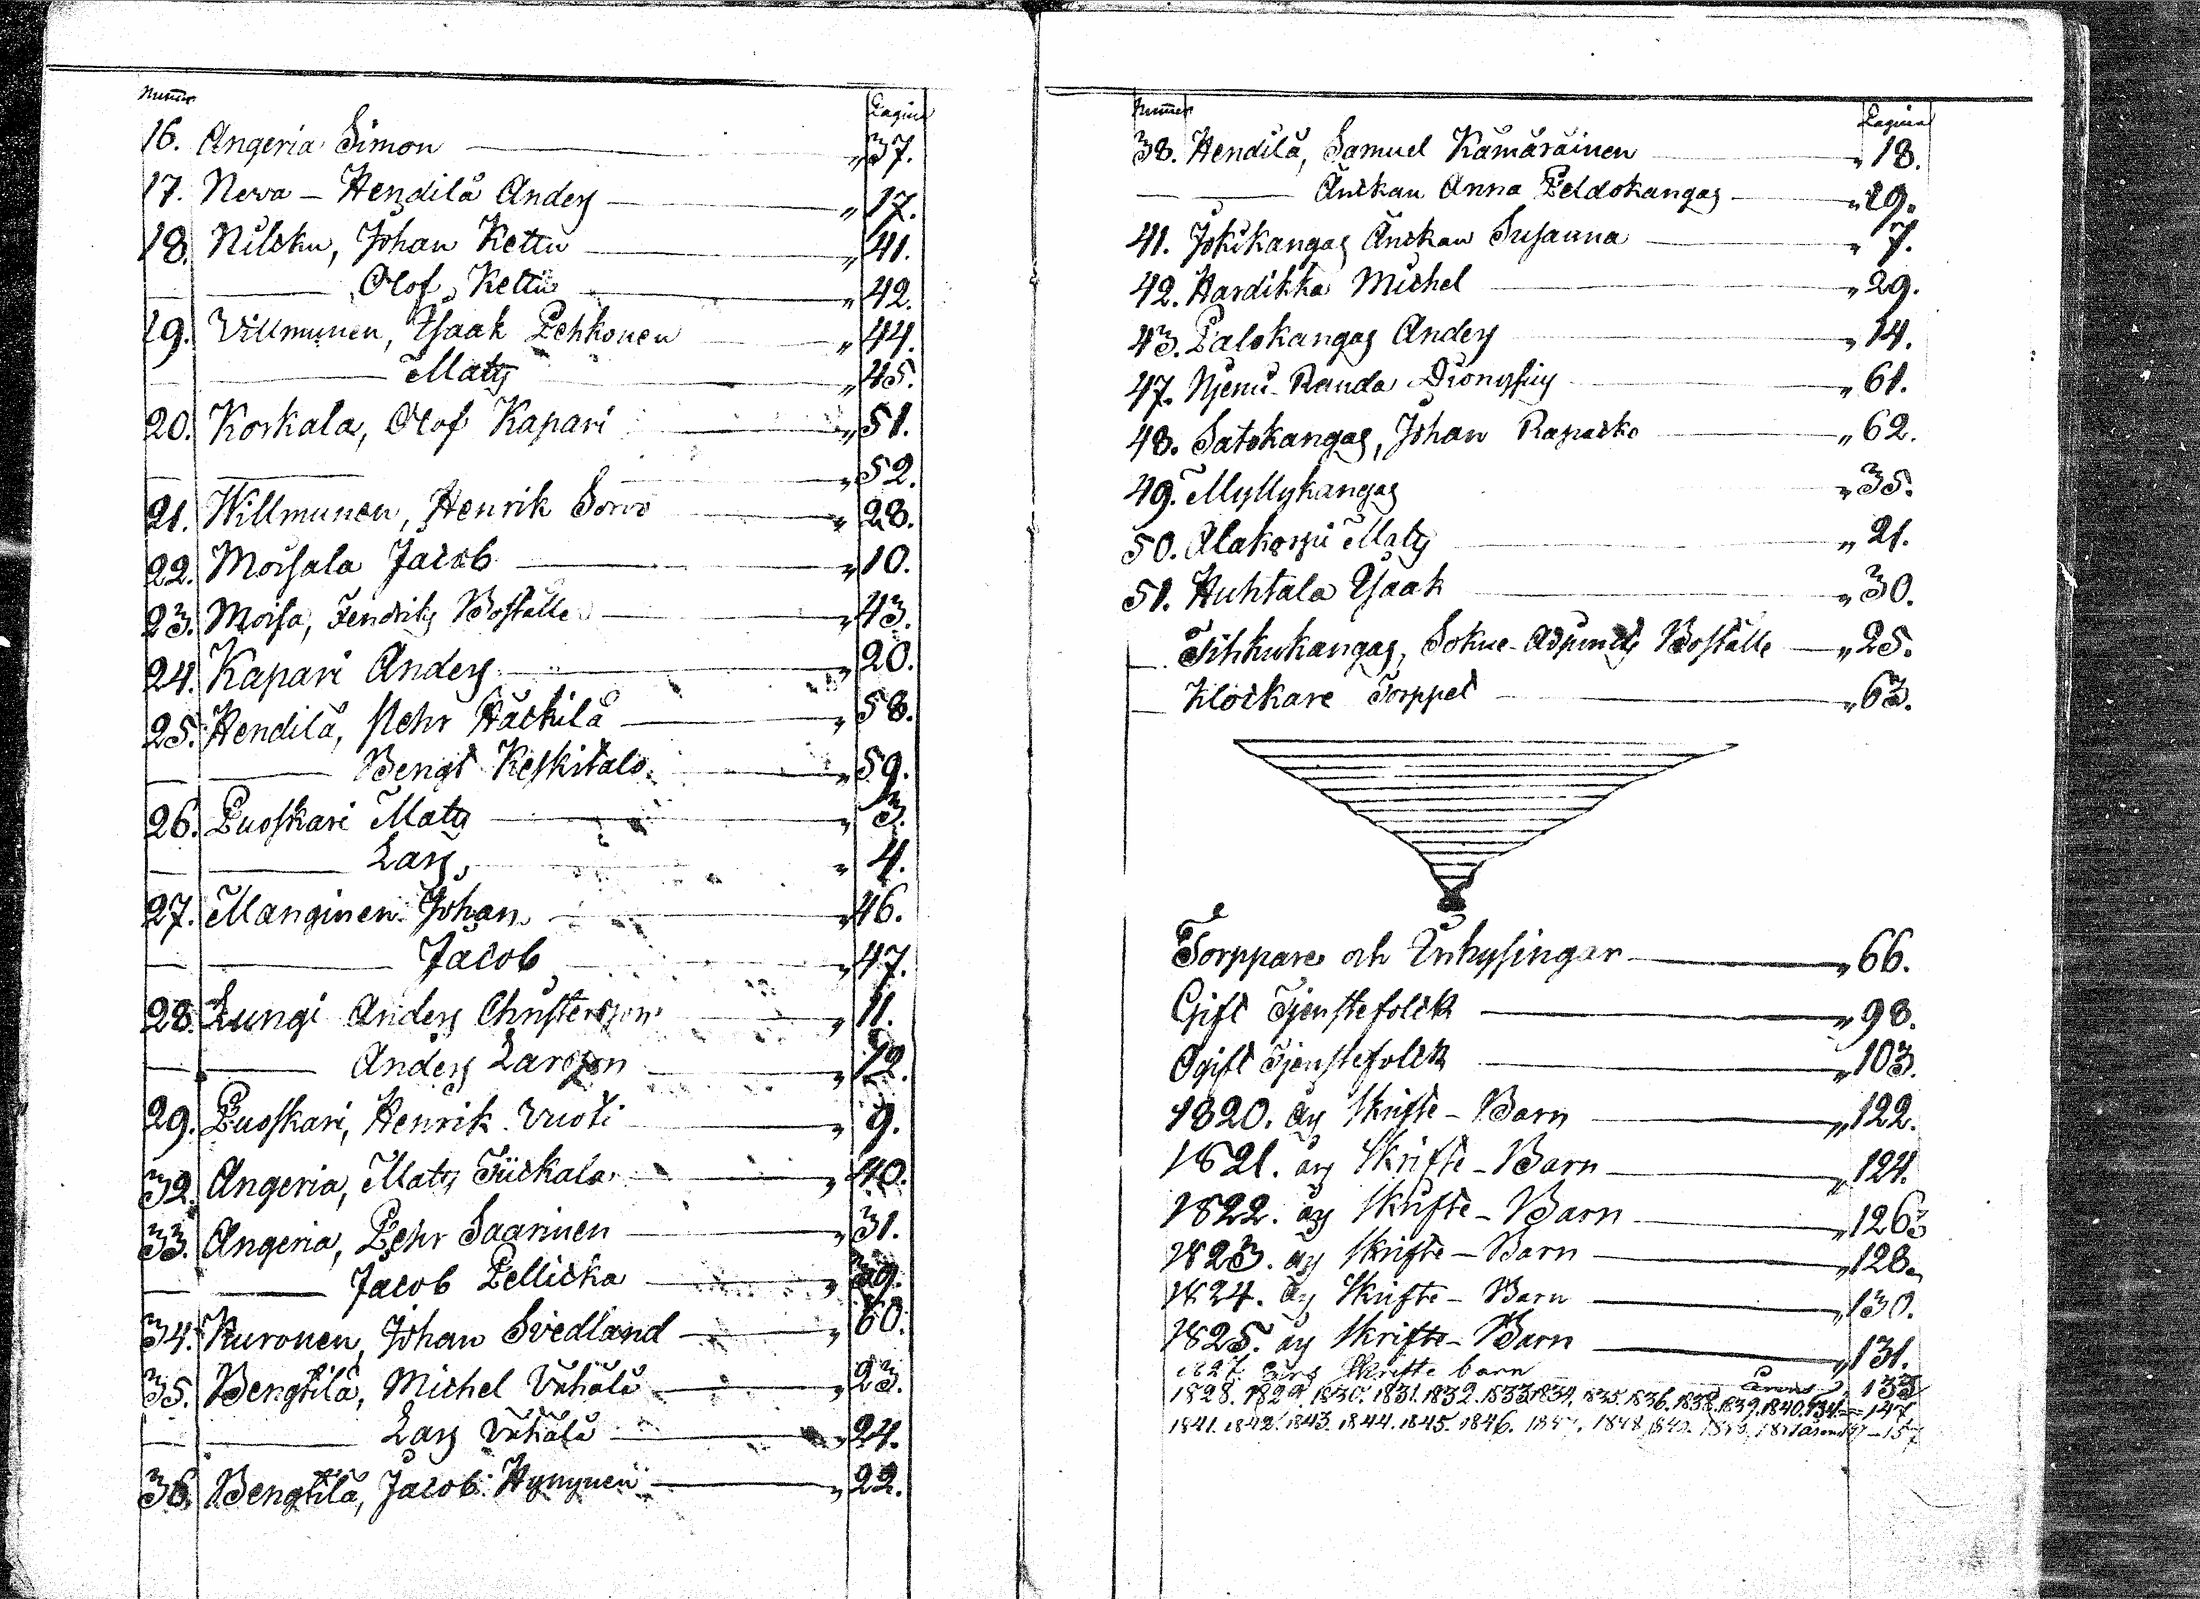 Numer Pagina
16. Angeria Simon „ 37.
17. Neva - Hendilä Anders „ 17.
18. Nilcku, Johan Kettu „ 41.
Olof Kettu „ 42.
19. Villmunen, Isaak Pehkonen „ 44.
Mats „ 45.
20. Korkala, Olof Kapari „ 51.
„ 52.
21. Willmunen, Henrik Sorvo „ 28.
22. Moisala Jacob „ 10.
23. Moisa, Fendriks Boställe „ 43.
24. Kapari Anders „ 20.
25. Hendilä, Pehr Häckilä „ 58.
Bengt Keskitalo „ 59.
26. Puoskari Mats „ 3.
Lars „ 4.
27. Manginen Johan „ 46.
Jacob „ 47.
28. Lungi Anders Christersson „ 11.
Anders Larsson „ 12.
29. Puoskari, Henrik Vuoti „ 9.
32. Angeria, Mats Fückala „ 40.
33. Angeria, Pehr Saarinen „ 31.
Jacob Pellicka „ 39.
34. Kuronen, Johan Svedland „ 60.
35. Bengtilä, Michel Vähälä „ 23.
Lars Vähälä „ 24.
36. Bengtilä, Jacob Hynynen „ 22.
Numer Pagina
38. Hendilä, Samuel Kämäräinen „ 18.
Änckan Anna Peldokangas „ 19.
41. Jokikangas Änckan Susanna „ 7.
42. Hardikka Michel „ 29.
43. Palokangas Anders „ 14.
47. Njemi-Randa Dionysius „ 61.
48. Satokangas, Johan Rapacko „ 62.
49. Myllykangas „ 35.
50. Alakorpi Mats „ 21.
51. Huhtala Isaak „ 30.
Tihkukangas, Sokne-Adjuncts Boställe „ 25.
Klockare Torppet „ 63.
Torppare och Inhysingar „ 66.
Gift Tjenstefolck „ 98.
Ogift Tjenstefolck „ 103.
1820. års Skrifte-Barn „ 122.
1821. års Skrifte-Barn „ 124.
1822. års Skrifte-Barn „ 126.
1823. års Skrifte-Barn „ 128.
1824. års Skrifte-Barn „ 130.
1825. års Skrifte-Barn „ 131.
1827. års Skrifte barn 133
1828. 1829. 1830. 1831. 1832. 1833. 1834. 1835. 1836. 1838. 1839. 1840. 147
1841. 1842. 1843. 1844. 1845. 1846. 1848. 157